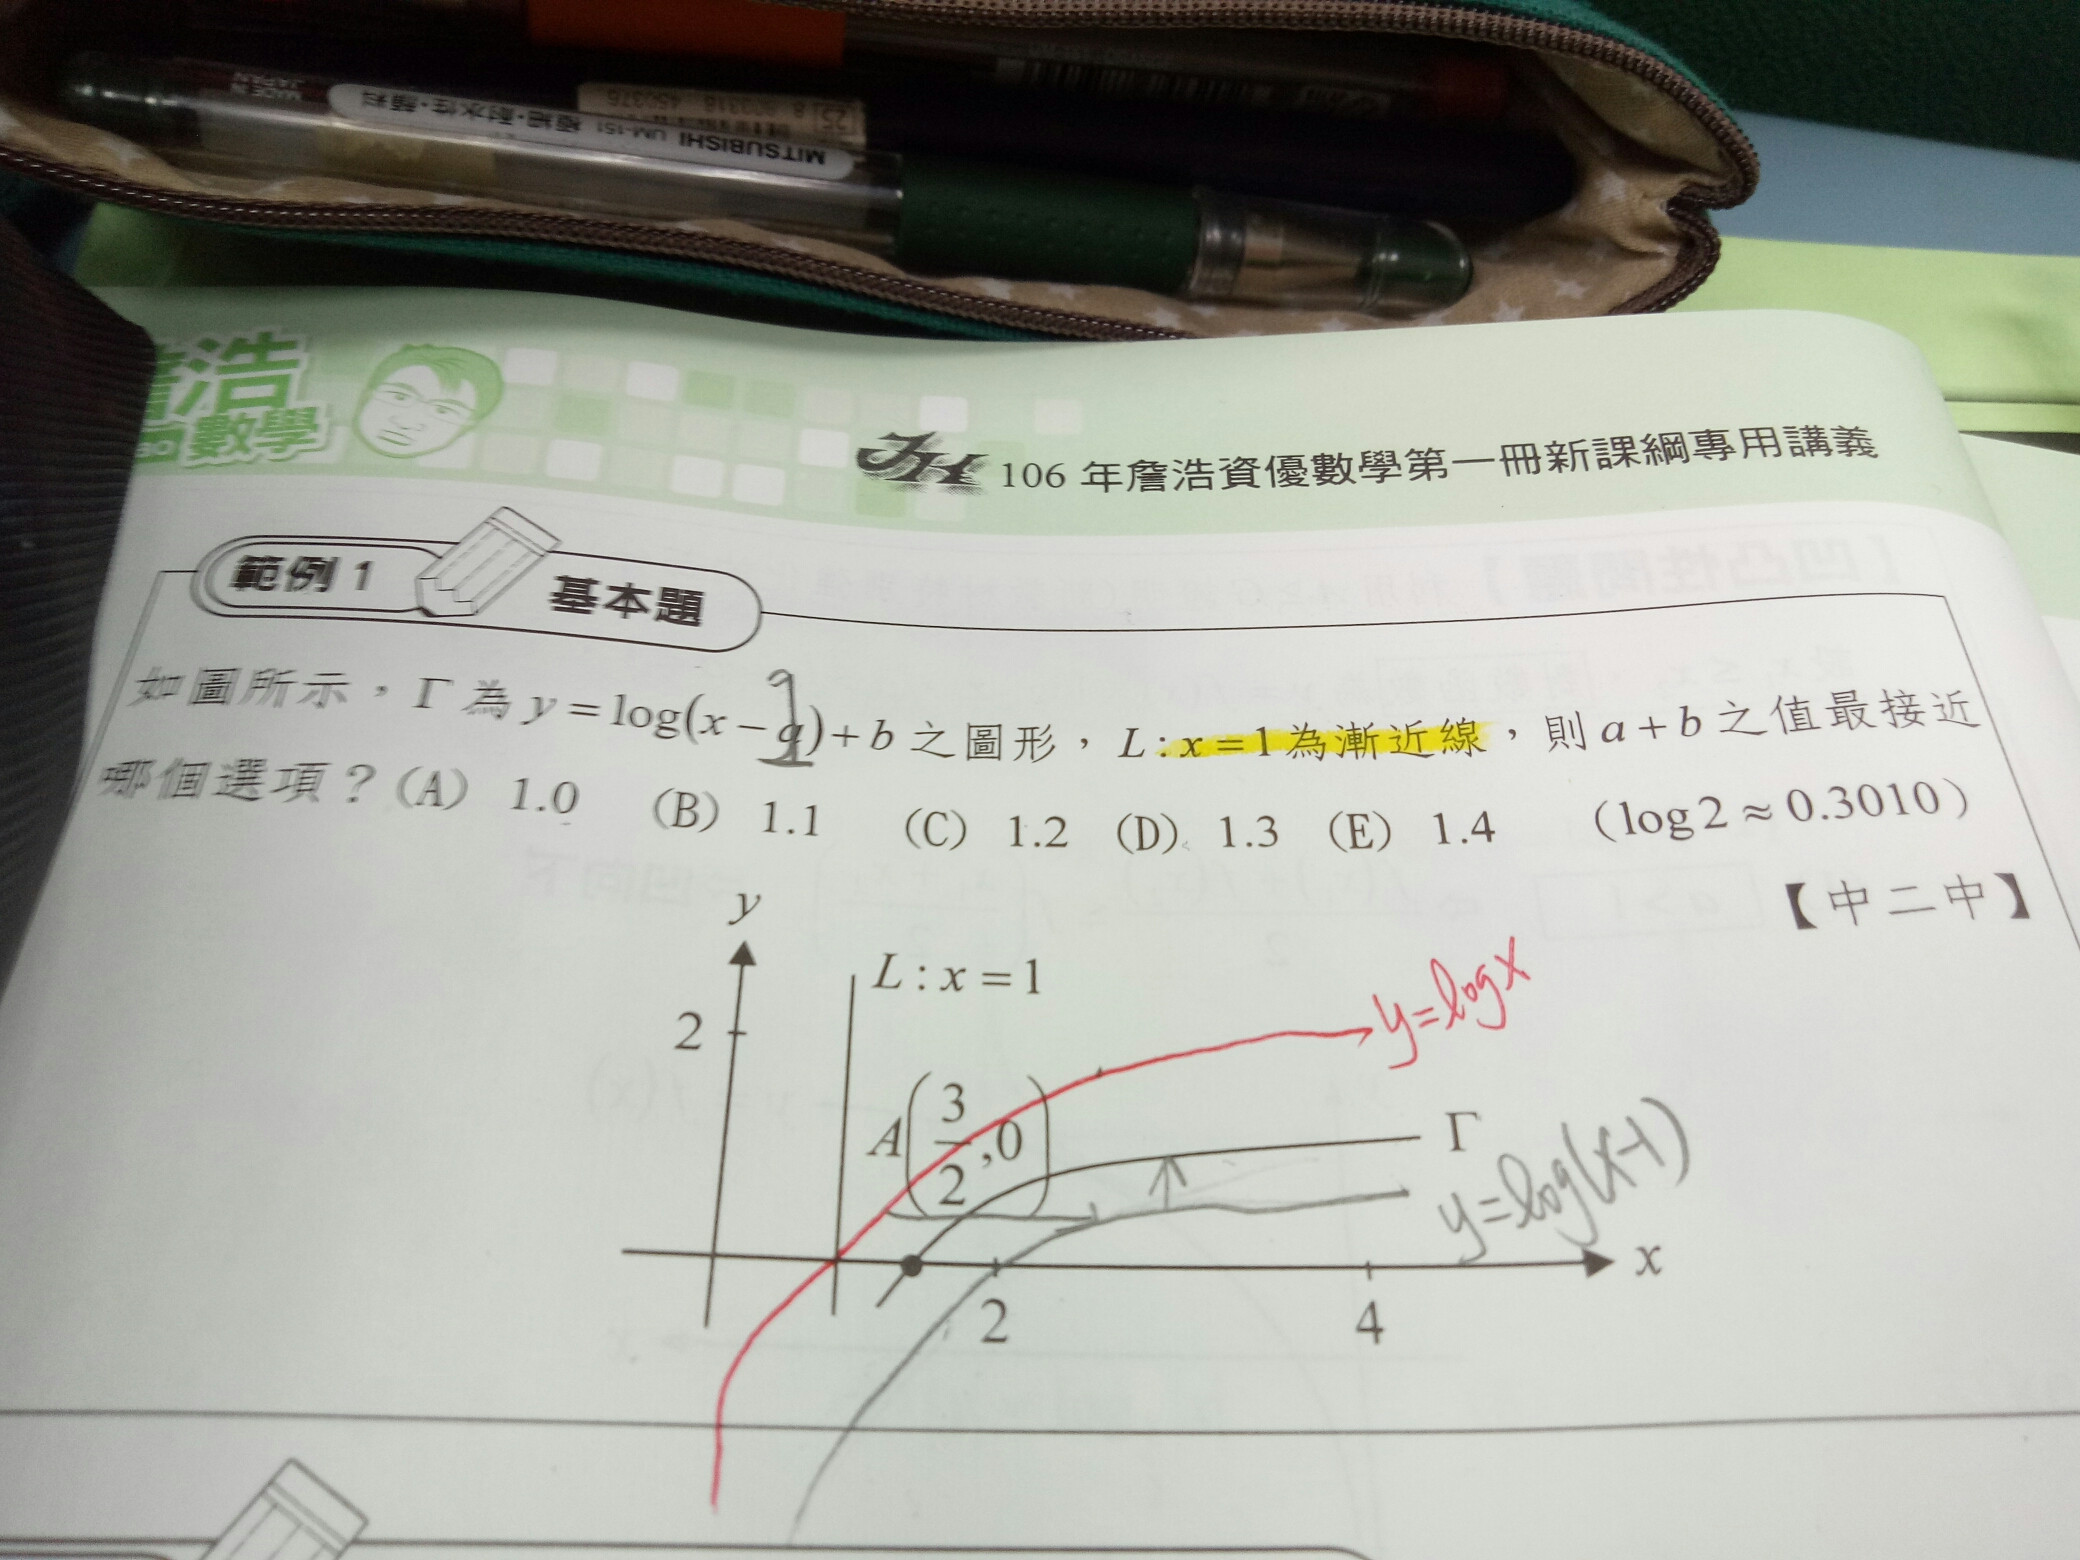 MITSUBISHI UM-151 極細・耐水性・顔料
JAPAN
浩
數學
JH 106 年詹浩資優數學第一冊新課綱專用講義
範例 1 基本題
如圖所示，Γ 為 y = log(x − a) + b 之圖形，L : x = 1 為漸近線，則 a + b 之值最接近
哪個選項？(A) 1.0 (B) 1.1 (C) 1.2 (D) 1.3 (E) 1.4 （log 2 ≈ 0.3010）
【中二中】
y
L : x = 1
y=logx
2
A(3/2, 0)
Γ
y=log(x-1)
x
2
4